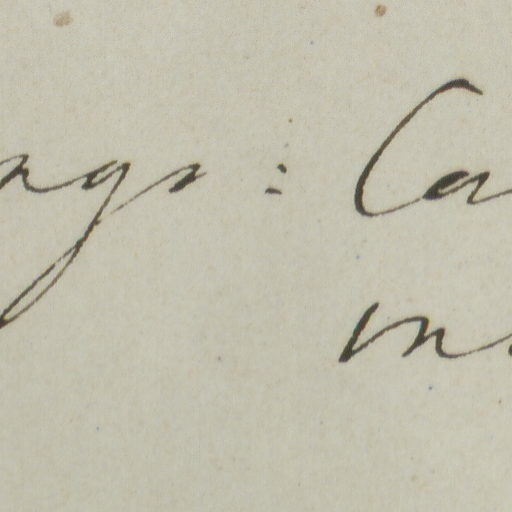 ngs: Ca
m